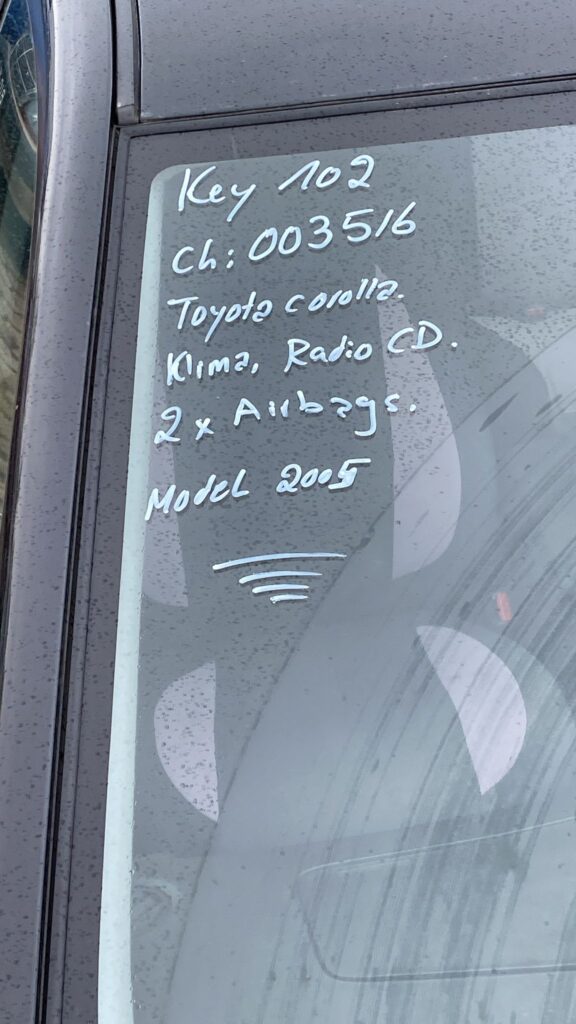 Key 102
Ch: 003516
Toyota corolla.
Klima, Radio CD.
2 x Airbags.
Model 2005